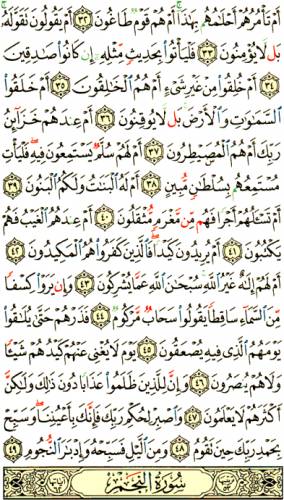 أَمْ تَأْمُرُهُمْ أَحْلَـٰمُهُم بِهَـٰذَآ أَمْ هُمْ قَوْمٌ طَاغُونَ ﴿٣٢﴾ أَمْ يَقُولُونَ تَقَوَّلَهُۥ
بَل لَّا يُؤْمِنُونَ ﴿٣٣﴾ فَلْيَأْتُوا۟ بِحَدِيثٍ مِّثْلِهِۦٓ إِن كَانُوا۟ صَـٰدِقِينَ
﴿٣٤﴾ أَمْ خُلِقُوا۟ مِنْ غَيْرِ شَىْءٍ أَمْ هُمُ ٱلْخَـٰلِقُونَ ﴿٣٥﴾ أَمْ خَلَقُوا۟
ٱلسَّمَـٰوَٰتِ وَٱلْأَرْضَ بَل لَّا يُوقِنُونَ ﴿٣٦﴾ أَمْ عِندَهُمْ خَزَآئِنُ
رَبِّكَ أَمْ هُمُ ٱلْمُصَۣيْطِرُونَ ﴿٣٧﴾ أَمْ لَهُمْ سُلَّمٌ يَسْتَمِعُونَ فِيهِ فَلْيَأْتِ
مُسْتَمِعُهُم بِسُلْطَـٰنٍ مُّبِينٍ ﴿٣٨﴾ أَمْ لَهُ ٱلْبَنَـٰتُ وَلَكُمُ ٱلْبَنُونَ ﴿٣٩﴾
أَمْ تَسْـَٔلُهُمْ أَجْرًا فَهُم مِّن مَّغْرَمٍ مُّثْقَلُونَ ﴿٤٠﴾ أَمْ عِندَهُمُ ٱلْغَيْبُ فَهُمْ
يَكْتُبُونَ ﴿٤١﴾ أَمْ يُرِيدُونَ كَيْدًا فَٱلَّذِينَ كَفَرُوا۟ هُمُ ٱلْمَكِيدُونَ ﴿٤٢﴾
أَمْ لَهُمْ إِلَـٰهٌ غَيْرُ ٱللَّهِ سُبْحَـٰنَ ٱللَّهِ عَمَّا يُشْرِكُونَ ﴿٤٣﴾ وَإِن يَرَوْا۟ كِسْفًا
مِّنَ ٱلسَّمَآءِ سَاقِطًا يَقُولُوا۟ سَحَابٌ مَّرْكُومٌ ﴿٤٤﴾ فَذَرْهُمْ حَتَّىٰ يُلَـٰقُوا۟
يَوْمَهُمُ ٱلَّذِى فِيهِ يُصْعَقُونَ ﴿٤٥﴾ يَوْمَ لَا يُغْنِى عَنْهُمْ كَيْدُهُمْ شَيْـًٔا
وَلَا هُمْ يُنصَرُونَ ﴿٤٦﴾ وَإِنَّ لِلَّذِينَ ظَلَمُوا۟ عَذَابًا دُونَ ذَٰلِكَ وَلَـٰكِنَّ
أَكْثَرَهُمْ لَا يَعْلَمُونَ ﴿٤٧﴾ وَٱصْبِرْ لِحُكْمِ رَبِّكَ فَإِنَّكَ بِأَعْيُنِنَا وَسَبِّحْ
بِحَمْدِ رَبِّكَ حِينَ تَقُومُ ﴿٤٨﴾ وَمِنَ ٱلَّيْلِ فَسَبِّحْهُ وَإِدْبَـٰرَ ٱلنُّجُومِ ﴿٤٩﴾
سُورَةُ ٱلنَّجْمِ